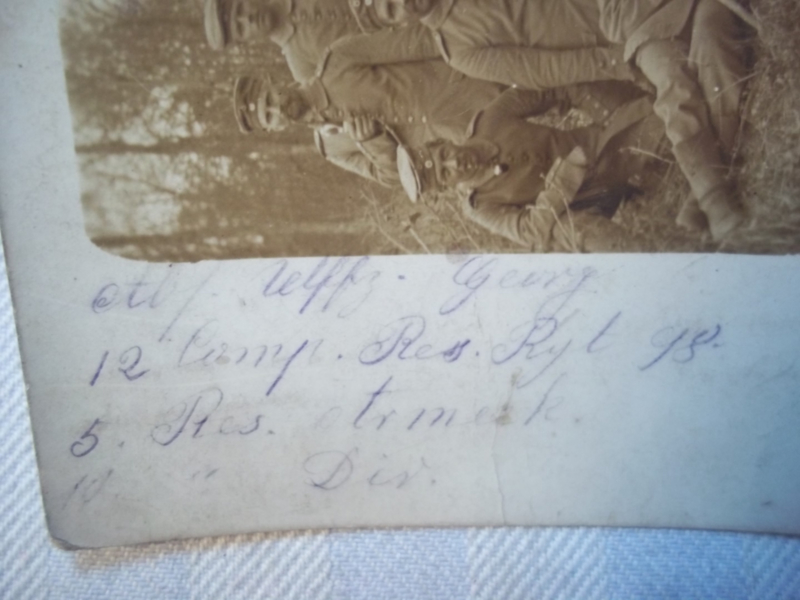 Abs. Uffz. Georg
12 Comp. Res. Rgt 98.
5. Res. Armeek.
10. " Div.